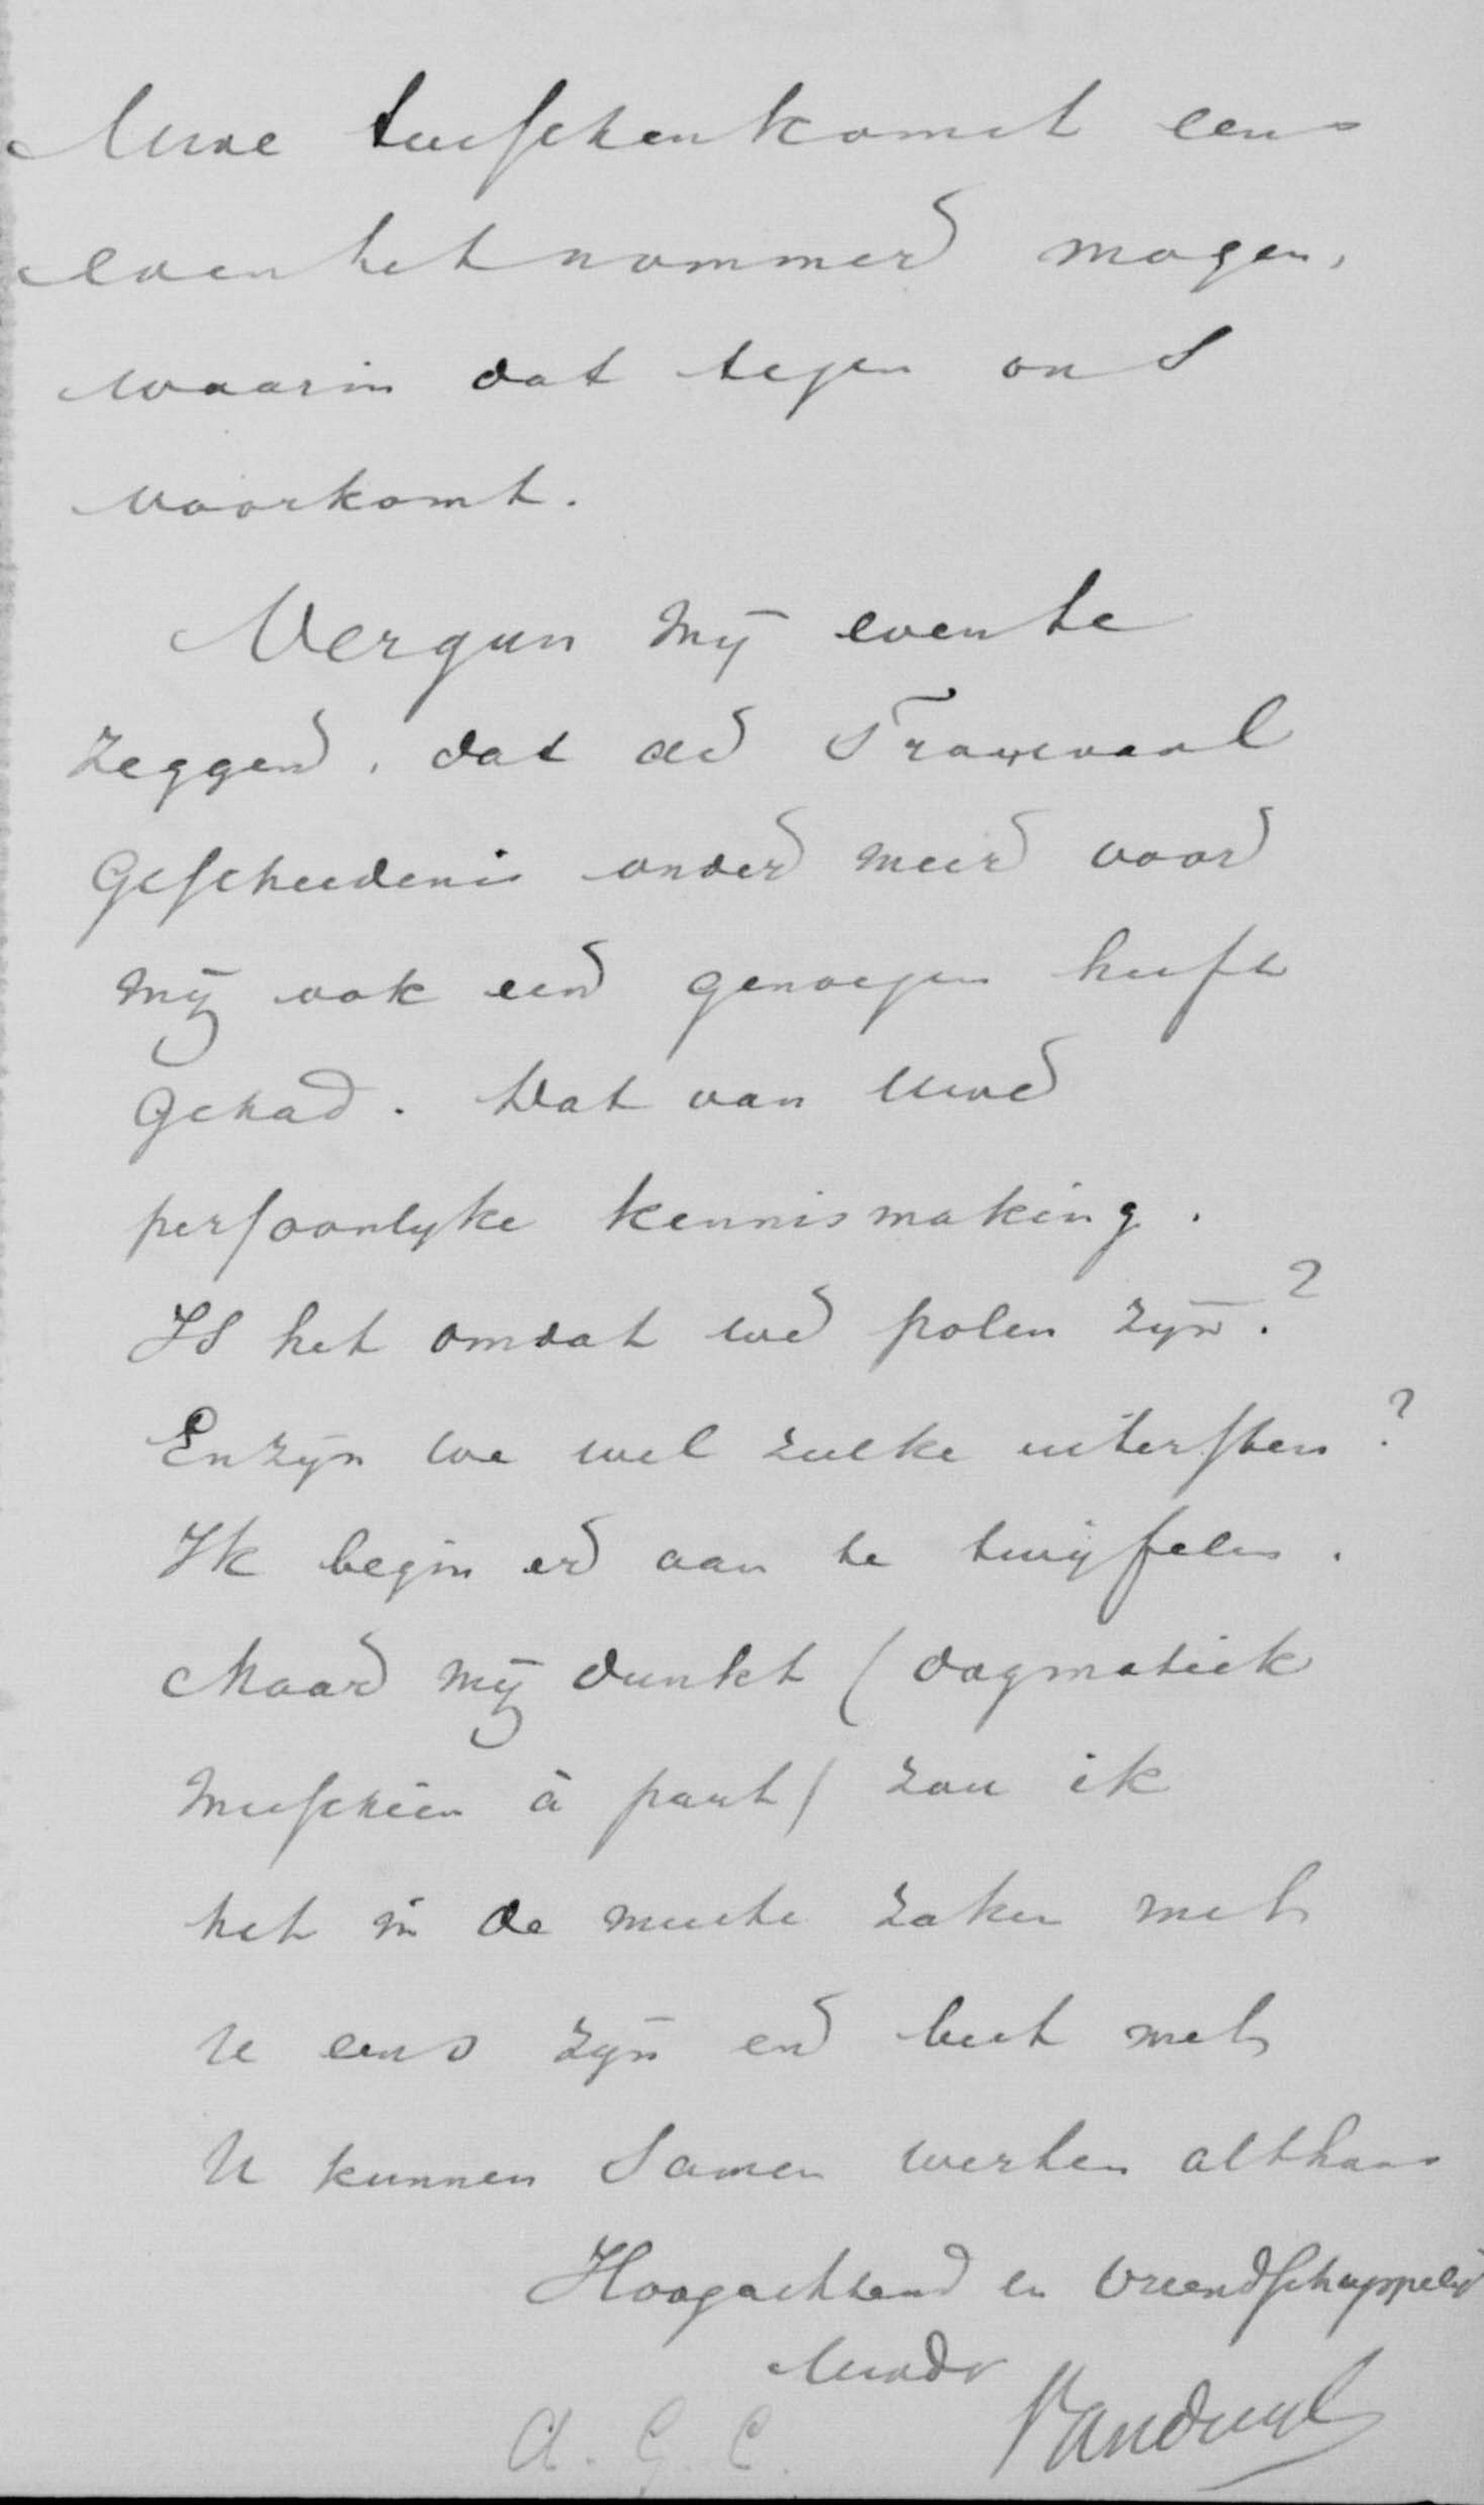 Uwe tusschenkomst eens
even het nommer mogen,
waarin dat tegen ons
voorkomt.
Vergun mij even te
zeggen, dat de Transvaal
Geschiedenis onder meer voor
mij ook een genoegen heeft
gehad. Dat van Uwe
persoonlyke kennismaking.
Is het omdat we polen zyn?
En zyn we wel zulke uitersten?
Ik begin er aan te twijfelen.
Maar mij dunkt (dogmatiek
misschien à part) zou ik
het in de meeste zaken met
U eens zyn en best met
U kunnen samen werken althans
Hoogachtend en vriendschappelijk
Uwdr
Vanduyl
A. G. C.